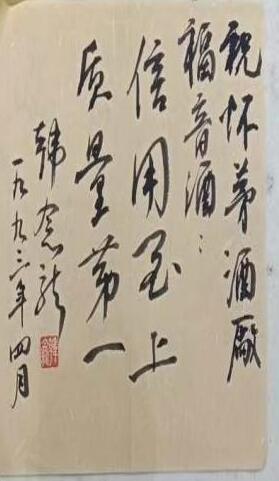 祝怀茅酒厰
福音酒：
信用至上
质量第一
韩念龙
一九九三年四月